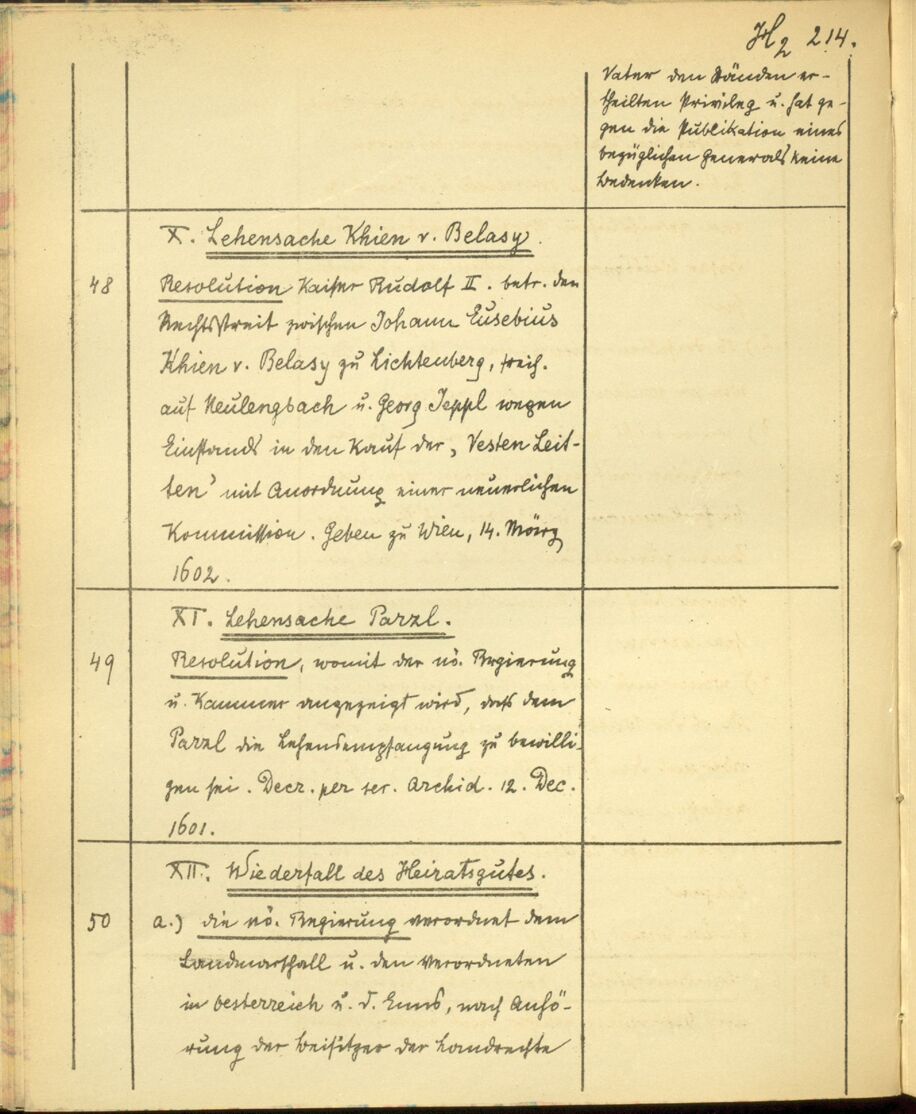 H2 214.
Vater den Ständen er-
theilten Privileg u. hat ge-
gen die Publikation eines
bezüglichen Generals keine
Bedenken.
X. Lehensache Khien v. Belasy.
48 Resolution Kaiser Rudolf II. betr. den
Rechtsstreit zwischen Johann Eusebius
Khien v. Belasy zu Lichtenberg, Freih.
auf Neulengbach u. Georg Teppl wegen
Einstands in den Kauf der „Vesten Leit-
ten" mit Anordnung einer neuerlichen
Kommission. Geben zu Wien, 14. März
1602.
XI. Lehensache Parzl.
49 Resolution, womit der nö. Regierung
u. Kammer angezeigt wird, dass dem
Parzl die Lehensempfangung zu bewilli-
gen sei. Decr. per ser. Archid. 12. Dec.
1601.
XII. Wiederfall des Heiratsgutes.
50 a.) die nö. Regierung verordnet dem
Landmarschall u. den Verordneten
in Oesterreich u. d. Enns, nach Anhö-
rung der Beisitzer der Landrechte